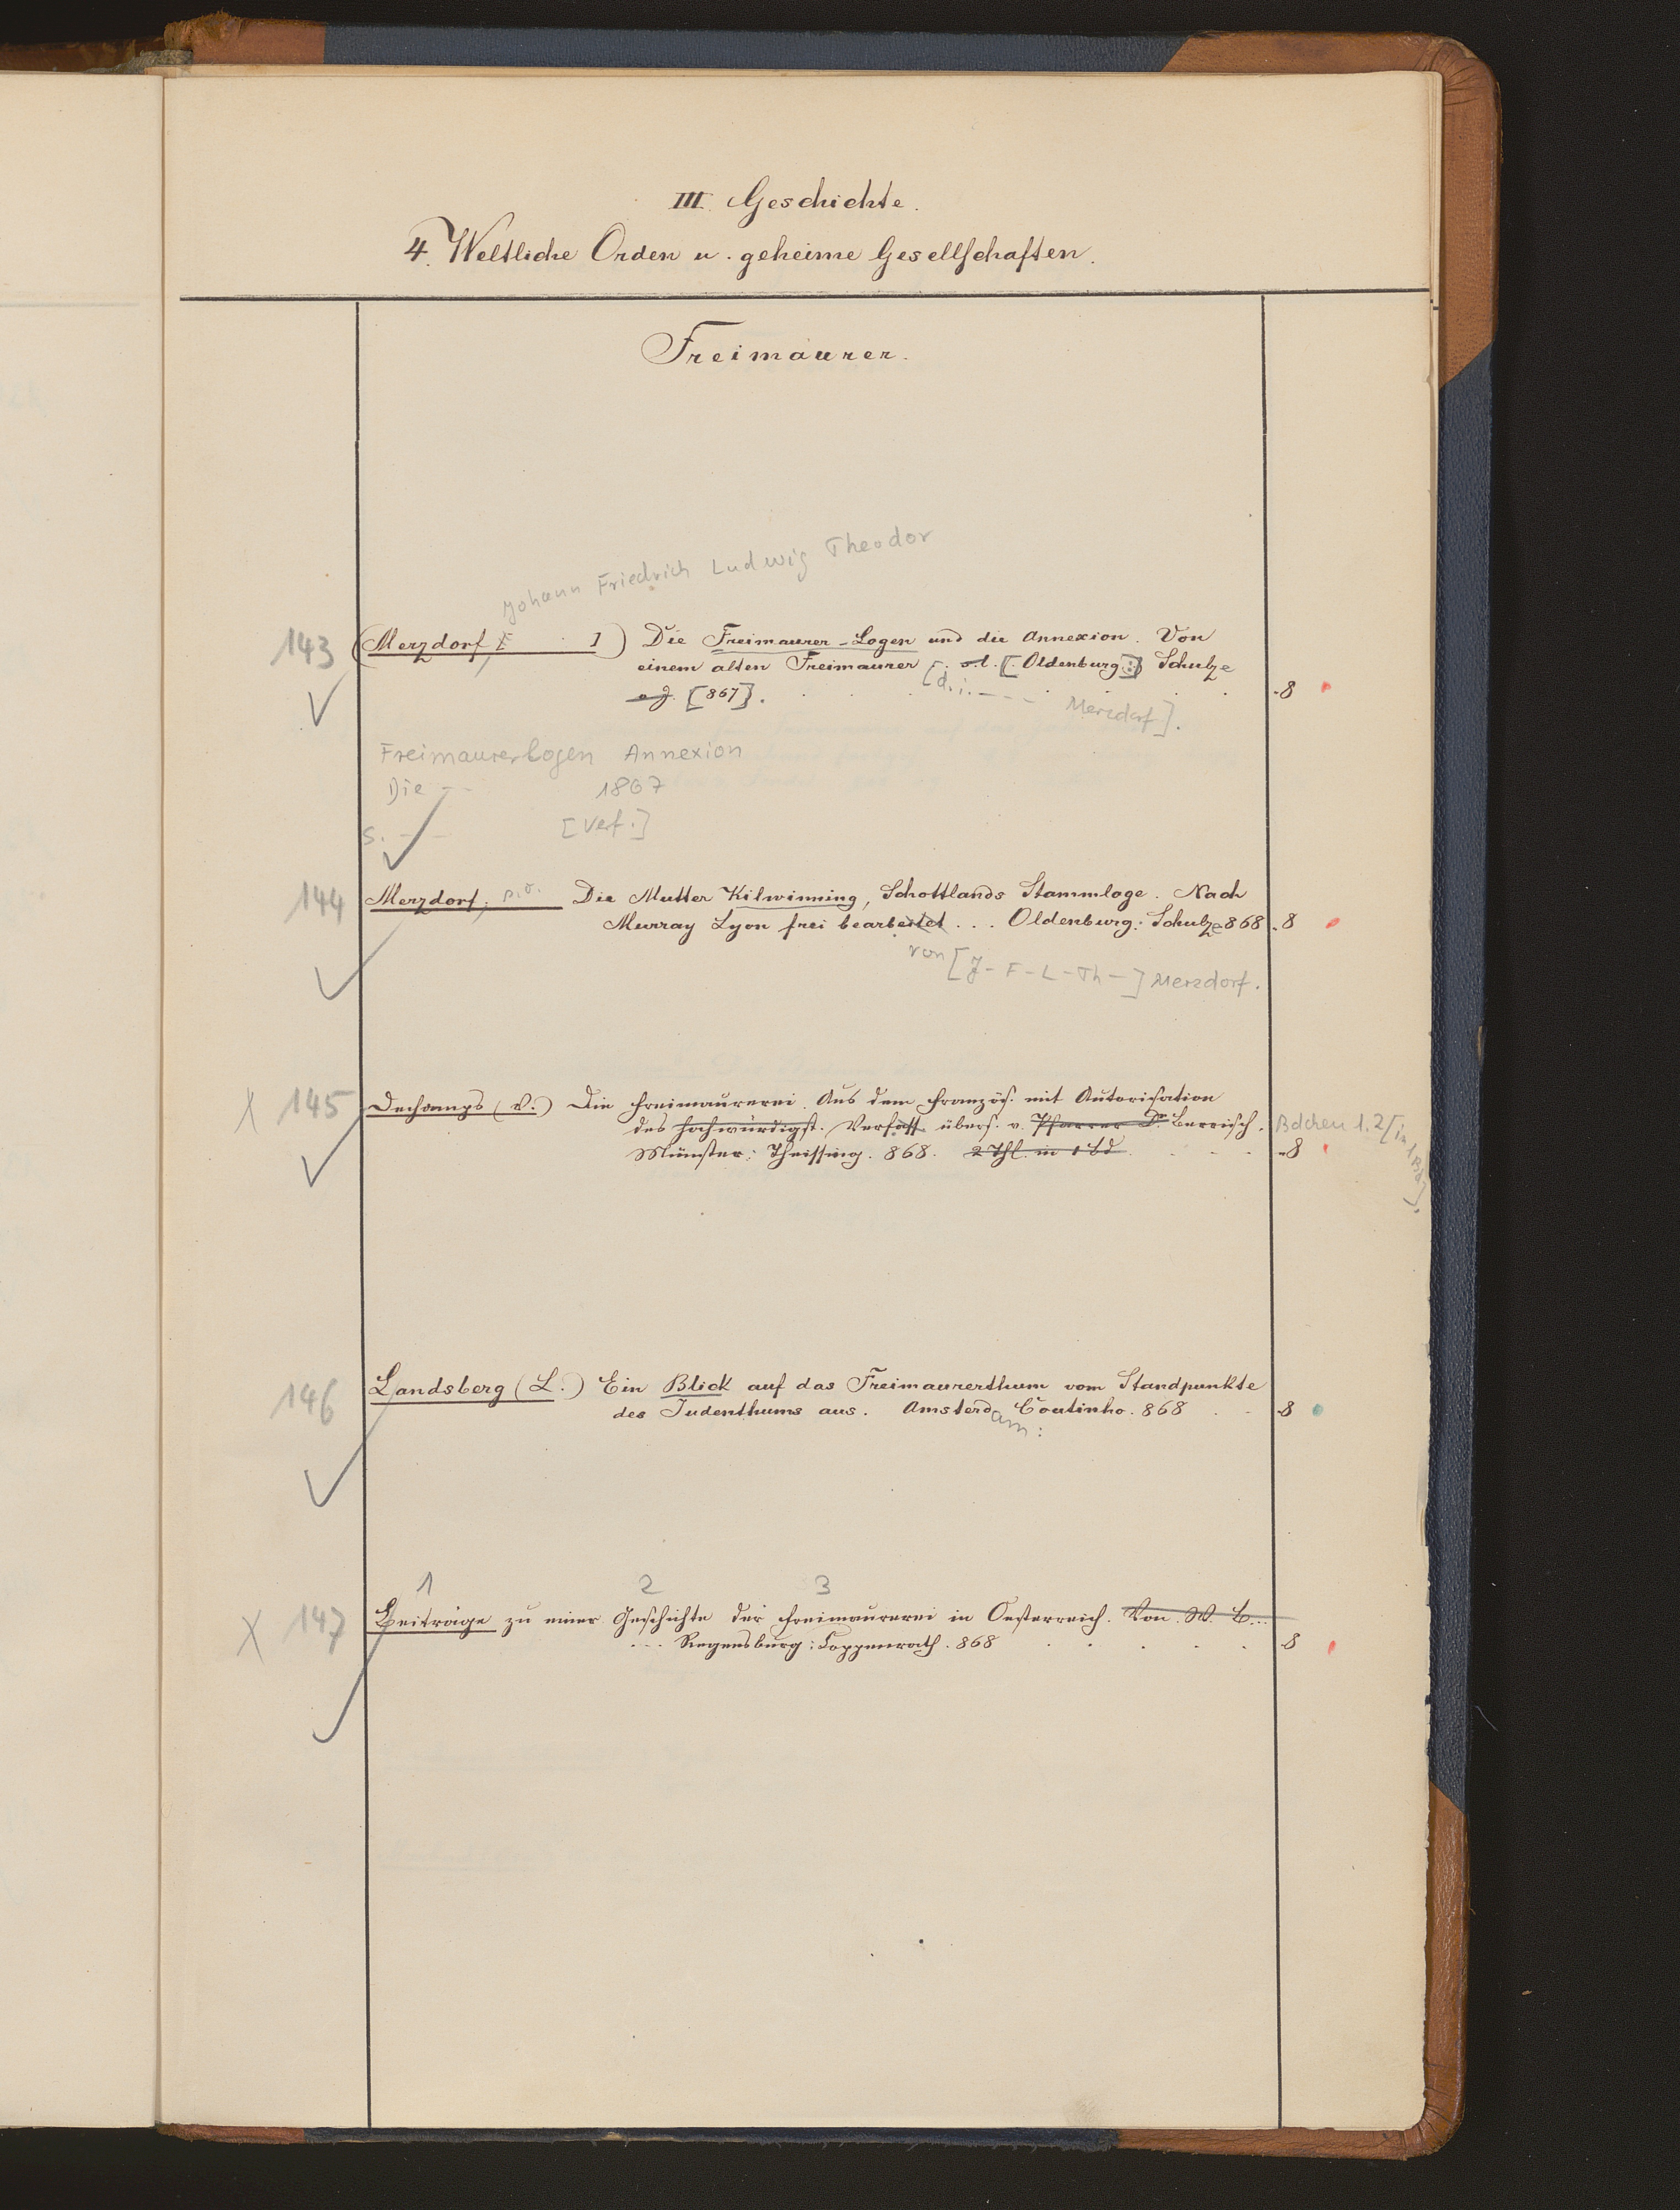 III. Geschichte.
4. Weltliche Orden u. geheime Gesellschaften.
Freimaurer.
Johann Friedrich Ludwig Theodor
143 (Merzdorf, ) Die Freimaurer-Logen und die Annexion. Von
einem alten Freimaurer. o. O. [Oldenburg:] Schulze
o. J. [867]. -8
[d. i. --- Merzdorf].
Freimaurerlogen Annexion
Die -- 1867
S. -- [Verf.]
144 Merzdorf, Die Mutter Kilwinning, Schottlands Stammloge. Nach
Murray Lyon frei bearbeitet ... Oldenburg: Schulze 868. -8
von [J- F- L- Th-] Merzdorf.
X 145 Dechamps (V.) Die Freimaurerei. Aus dem Französ. mit Autorisation
des hochwürdigst. Verfass. übers. v. Pfarrer Dr. Bdchen 1. 2 [in 1 Bd].
Münster: Theissing. 868. 2 Thl. in 1 Bd. -8
146 Landsberg (L.) Ein Blick auf das Freimaurerthum vom Standpunkte
des Judenthums aus. Amsterdam: Coutinho. 868 -8
1 2 3
X 147 Beiträge zu einer Geschichte der Freimaurerei in Oesterreich. Von W. B...
... Regensburg: Coppenrath. 868 -8